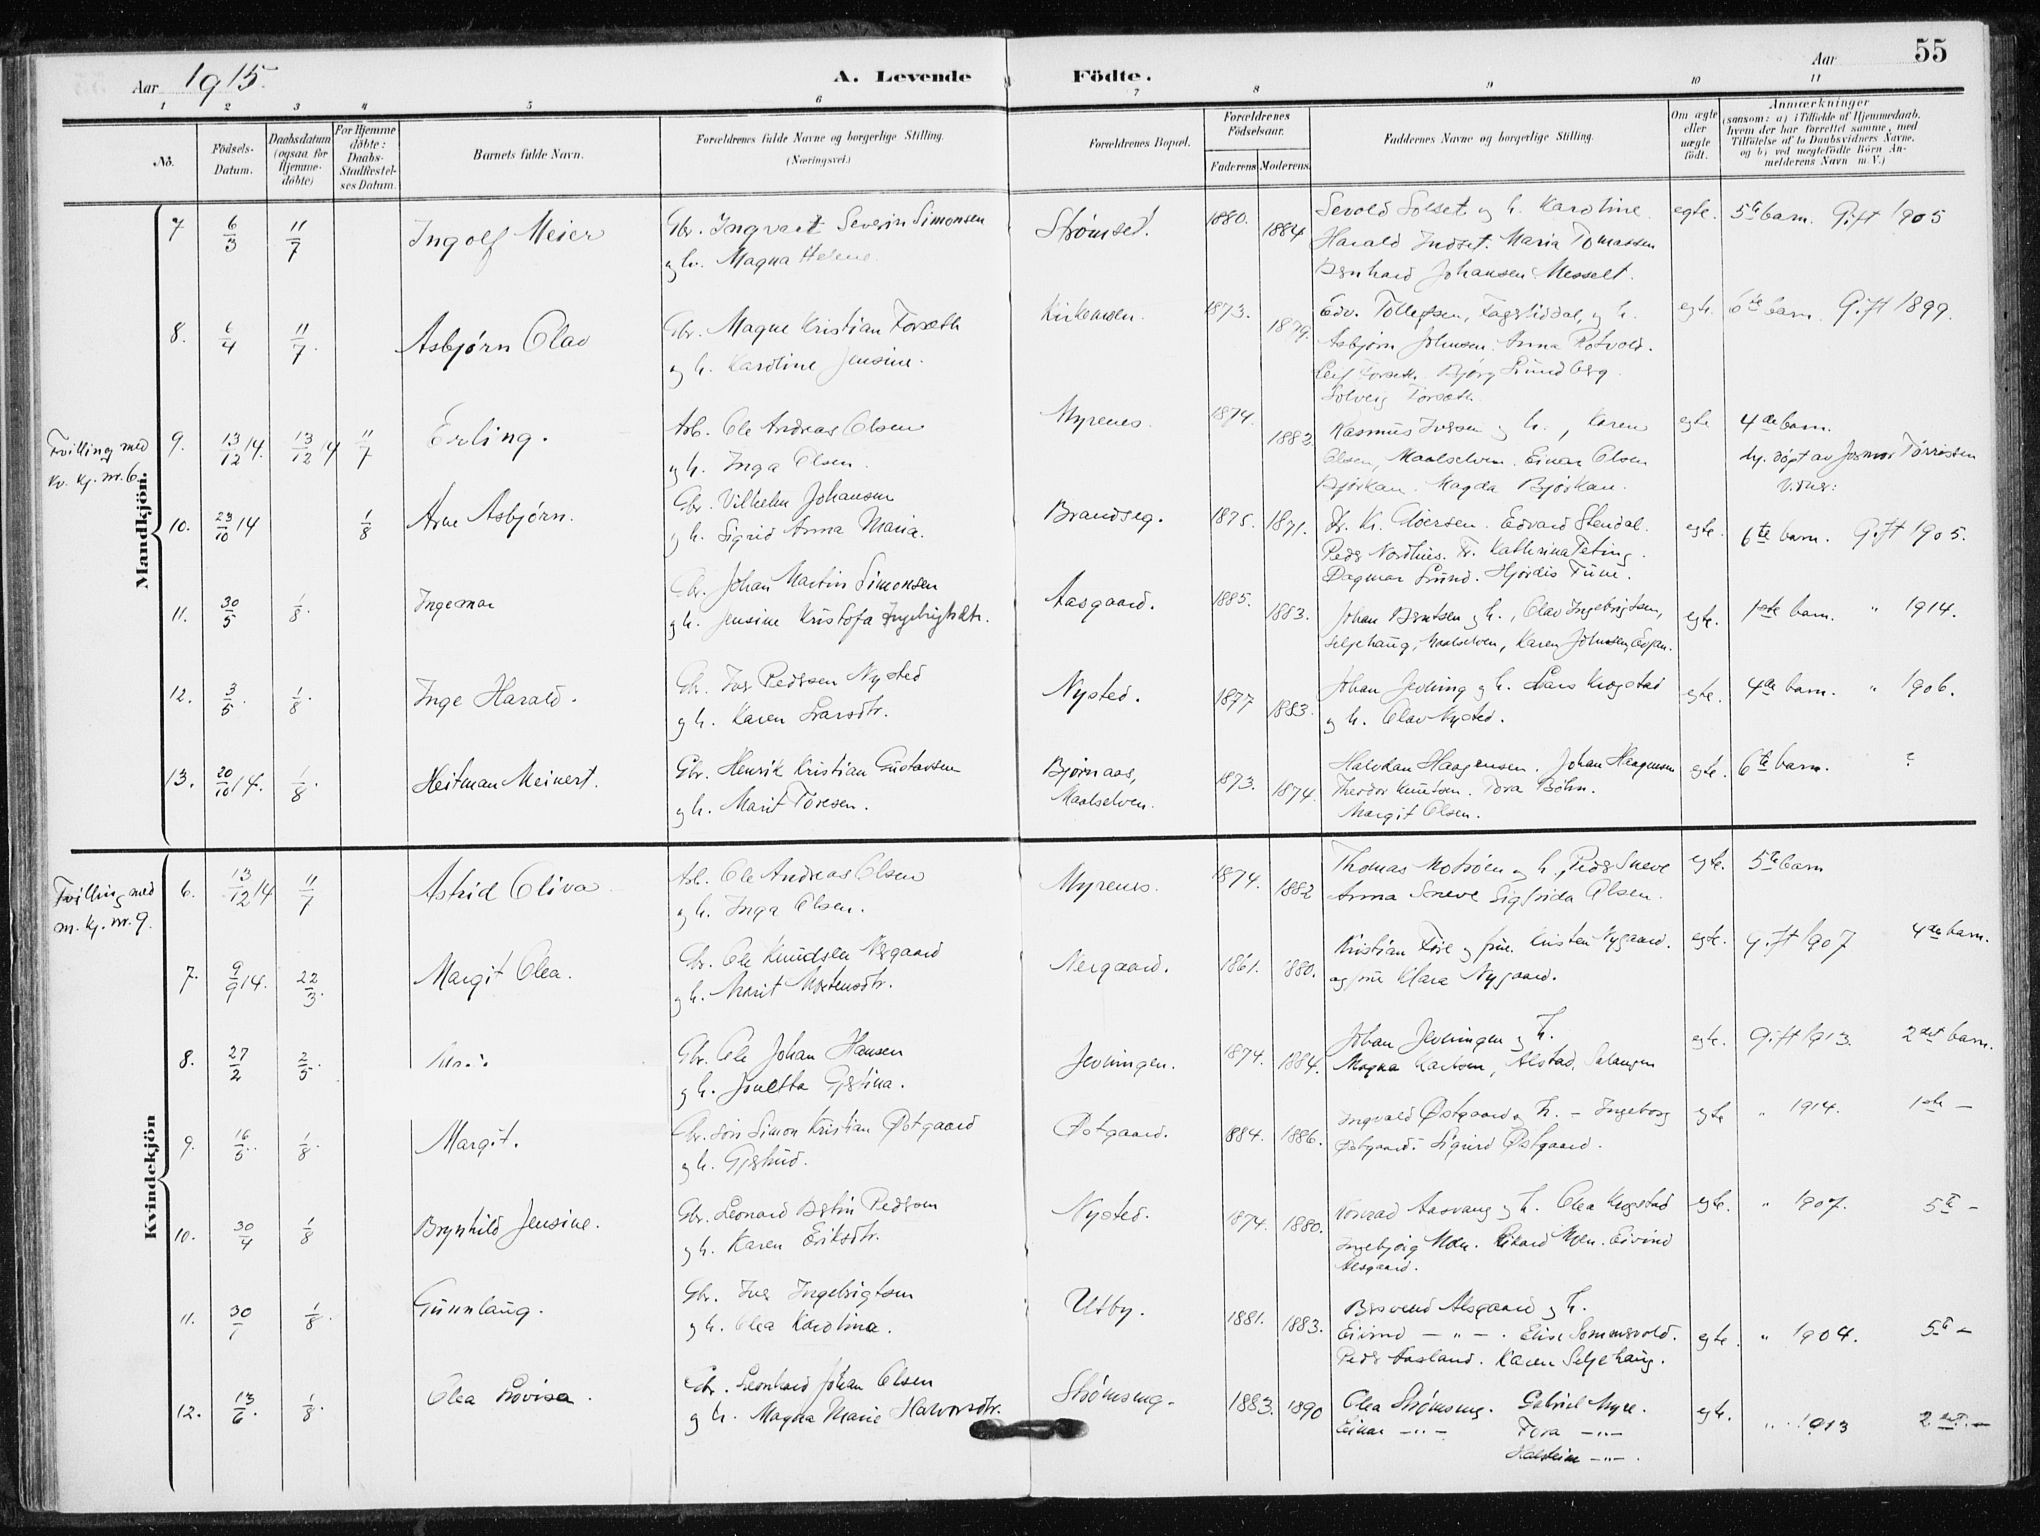 55
Aar 1915.
A. Levende Födte.
Aar
1 2 3 4 5 6 7 8 9 10 11
No.
Födsels-
Datum.
Daabsdatum
(ogsaa for
Hjemme-
döbte)
For Hjemme
döbte:
Daabs-
Stadfæstel-
ses Datum.
Barnets fulde Navn.
Forældrenes fulde Navne og borgerlige Stilling.
(Næringsvei.)
Forældrenes Bopæl.
Forældrenes
Födselsaar.
Faderens Moderens
Faddernes Navne og borgerlige Stilling.
Om ægte
eller
uægte
födt.
Anmærkninger
(saasom: a) i Tilfælde af Hjemmedaab,
hvem der har forrettet samme, med
Tilföielse af to Daabsvidners Navne,
og b) ved uægtefödte Börn An-
melderens Navn m. V.)
Mandkjön.
7 6/3 11/7 Ingolf Meier
Gbr. Ingvart Severin Simonsen
og h. Magna Helene.
Strømset. 1880. 1884
Sevold Solset og h. Karoline.
Harald Indset. Maria Tomassen
Bernhard Johansen Messelt.
egte. 5te barn. Gift 1905
8. 6/4 11/7. Asbjørn Olav
Gbr. Magne Kristian Forseth
og h. Karoline Jensine.
Kirkemoen. 1873. 1879.
Edv. Tollefsen, Fagerliddal, og h.
Asbjørn Johnsen. Anna Rotvold.
Leif Forseth. Bjørg Lundberg.
Solveig Forseth.
egte. 6te barn. Gift 1899.
Tvilling med
kv. kj. nr. 6.
9. 13/12 14. 13/12 14 11/7 Erling.
Arb. Ole Andreas Olsen
og h. Inga Olsen.
Myrenes. 1874. 1882.
Rasmus Iversen og h., Karen
Olsen, Maalselven. Einar Olsen
Bjørkan. Magda Bjørkan.
egte 4de barn.
hj. døpt av Tørrissen
Vidner:
10. 23/10 14 1/8 Arne Asbjørn.
Gbr. Vilhelm Johansen
og h. Sigrid Anna Maria.
Brandseg. 1875. 1871.
Edvard Stendal.
Peder Nordhus. Fr. Kathrina Teting.
Dagmar Lund. Hjørdis Tune.
egte. 6te barn. Gift 1905.
11. 30/5 1/8. Ingemar
Gbr. Johan Martin Simonsen
og h. Jensine Kristofa Ingebrigtsdtr.
Aasgaard. 1885. 1883.
Johan Berntsen og h., Olav Ingebrigtsen,
Seljehaug, Maalselven, Karen Johnsen,
egte. 1ste barn. " 1914.
12. 3/5. 1/8. Inge Harald.
Gbr. Iver Pedersen Nysted
og h. Karen Larsdtr.
Nysted. 1877 1883.
Johan Jevning og h. Lars Krogstad
og h. Olav Nysted.
egte. 4de barn. " 1906.
13. 20/10 14. 1/8. Heitman Meinert.
Gbr. Henrik Kristian Gustavsen
og h. Marit Toresen.
Bjørnaas,
Maalselven.
1873. 1874.
Halvdan Haagensen. Johan Haagensen
Theodor Knutsen. Tora Bøhn.
Margit Olsen.
egte. 6te barn. ?
Kvindekjön
Tvilling med
m. kj. nr. 9.
6. 13/12 14 11/7 Astrid Oliva
Arb. Ole Andreas Olsen
og h. Inga Olsen.
Myrenes. 1874. 1882
Thomas Motrøen og h., Peder Sneve
Anna Sneve Sigfrida Olsen.
egte. 5te barn
7. 9/9 14. 22/3. Margit Olea.
Gbr. Ole Knudsen Nergaard
og h. Marit Mortensdtr.
Nergaard. 1861. 1880.
Kristian Fosse og frue. Kristen Nygaard.
og frue Klara Nygaard.
egte. Gift 1907 4de barn.
8. 27/2 2/5.
Gbr. Ole Johan Hansen
og h. Jonetta Gjertina.
Jevningen. 1874. 1884.
Johan Jevningen og h.
Magna Karlsen, Alstad. Salangen
egte. Gift 1913. 2det barn.
9. 16/5.. 1/8. Margit.
Gbr. søn Simon Kristian Østgaard
og h. Gjertrud.
Østgaard. 1884. 1886.
Ingvald Østgaard og h. – Ingeborg
Østgaard. Sigurd Østgaard.
egte " 1914. 1ste –
10. 30/4 1/8 Brynhild Jensine.
Gbr. Leonard Bertin Pedersen
og h. Karen Eriksdtr.
Nysted. 1874. 1880.
Konrad Aasvang og h. Olea Krogstad
Ingebjørg Moen. Rikard Moen. Eivind
Alsgaard.
egte. " 1907. 5te –
11. 30/7 1/8. Gunnlaug.
Gbr. Iver Ingebrigtsen
og h. Olea Karolina.
Utby. 1881. 1883.
Bersvend Alsgaard og h.
Eivind – " – . Elise Sommervold.
Peder Aasland. Karen Seljehaug.
egte. " 1904. 5te –
12. 13/6. 1/8. Olea Lovisa.
Gbr. Leonhard Johan Olsen
og h. Magna Marie Halvorsdtr.
Strømseng. 1883. 1890
Olea Strømseng. Gabriel Myre.
Einar – " – Tora – " –
Halstein – " – .
egte. " 1913 2det. –